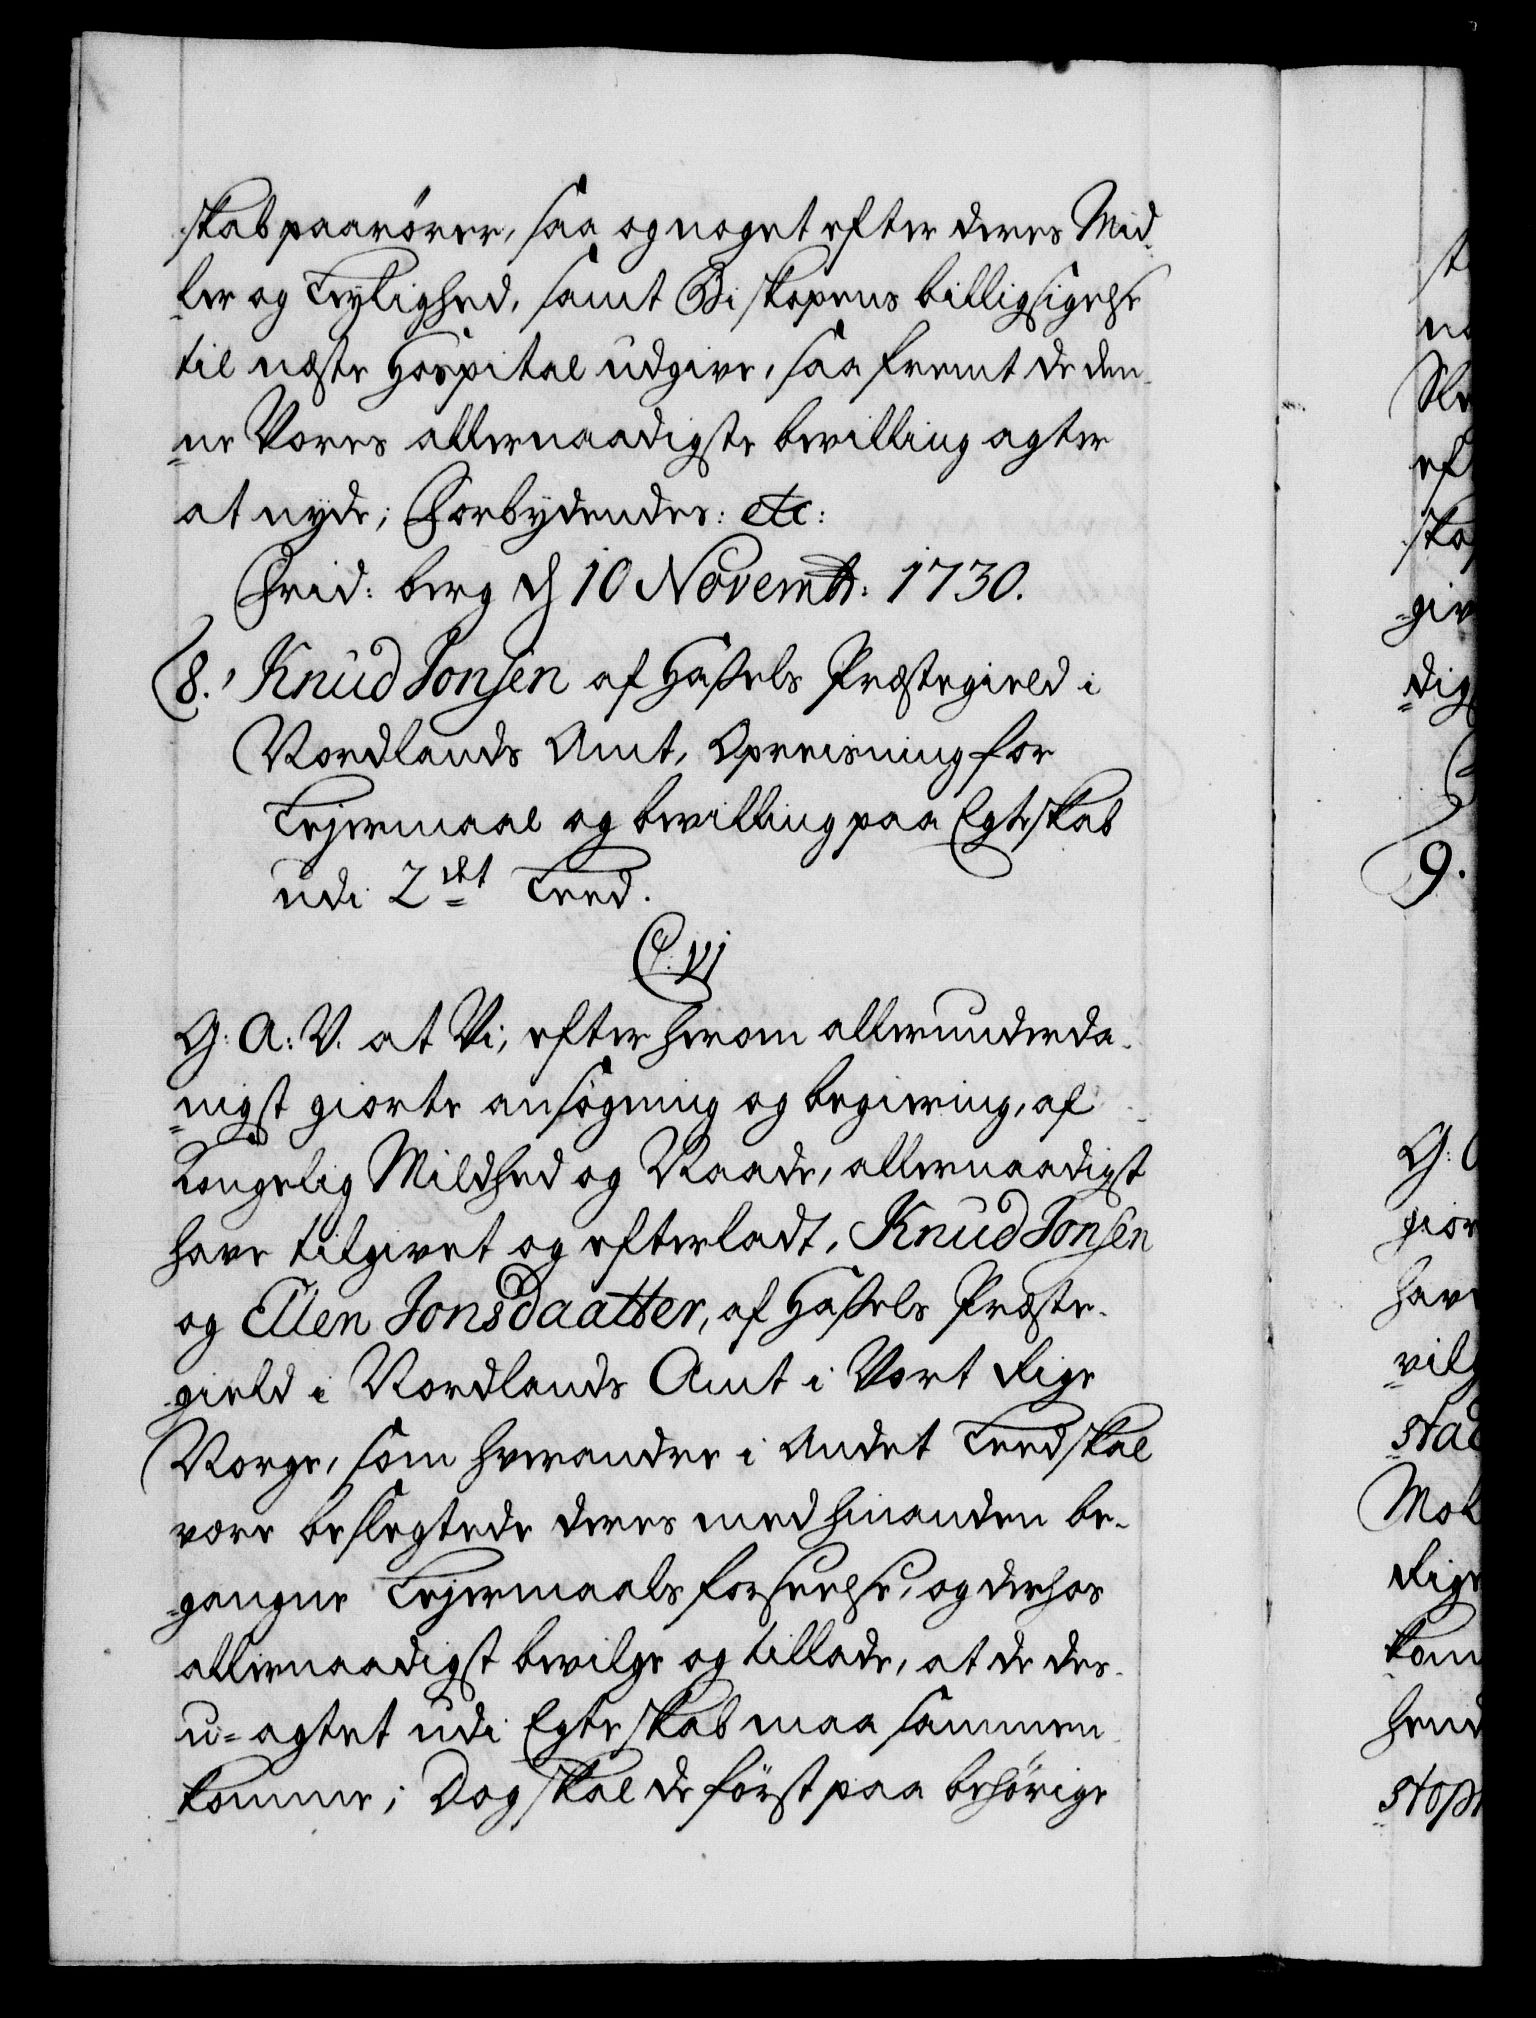 skab paarörer, saa og noget efter deres Mid-
ler og Leylighed, samt Biskopens billigsigelse
til næste Hospital udgive, saa fremt de den-
ne Vores allernaadigste bevilling agter
at nyde; Forbydendes: etc:
Frid: berg d 10 Novembr: 1730.
8. Knud Jonsen af Hassels Præstegield i
Nordlands Amt, Opreisning for
Lejermaal og bevilling paa Egteskab
udi 2det Leed.
C: vj
G: A: V. at Vi, efter herom allerunderda-
nigst giorte ansögning og begiering, af
Kongelig Mildhed og Naade, allernaadigst
have tilgivet og efterladt, Knud Jonsen
og Ellen Jonsdaatter, af Hassels Præste-
gield i Nordlands Amt i Vort Rige
Norge, som hverandre i Andet Leed skal
være beslegtede deres med hinanden be-
gangne Lejermaals forseelse, og derhos
allernaadigst bevilge og tillade, at de des-
u-agtet udi Egteskab maa sammen
komme; Dog skal de först paa behörige
9.